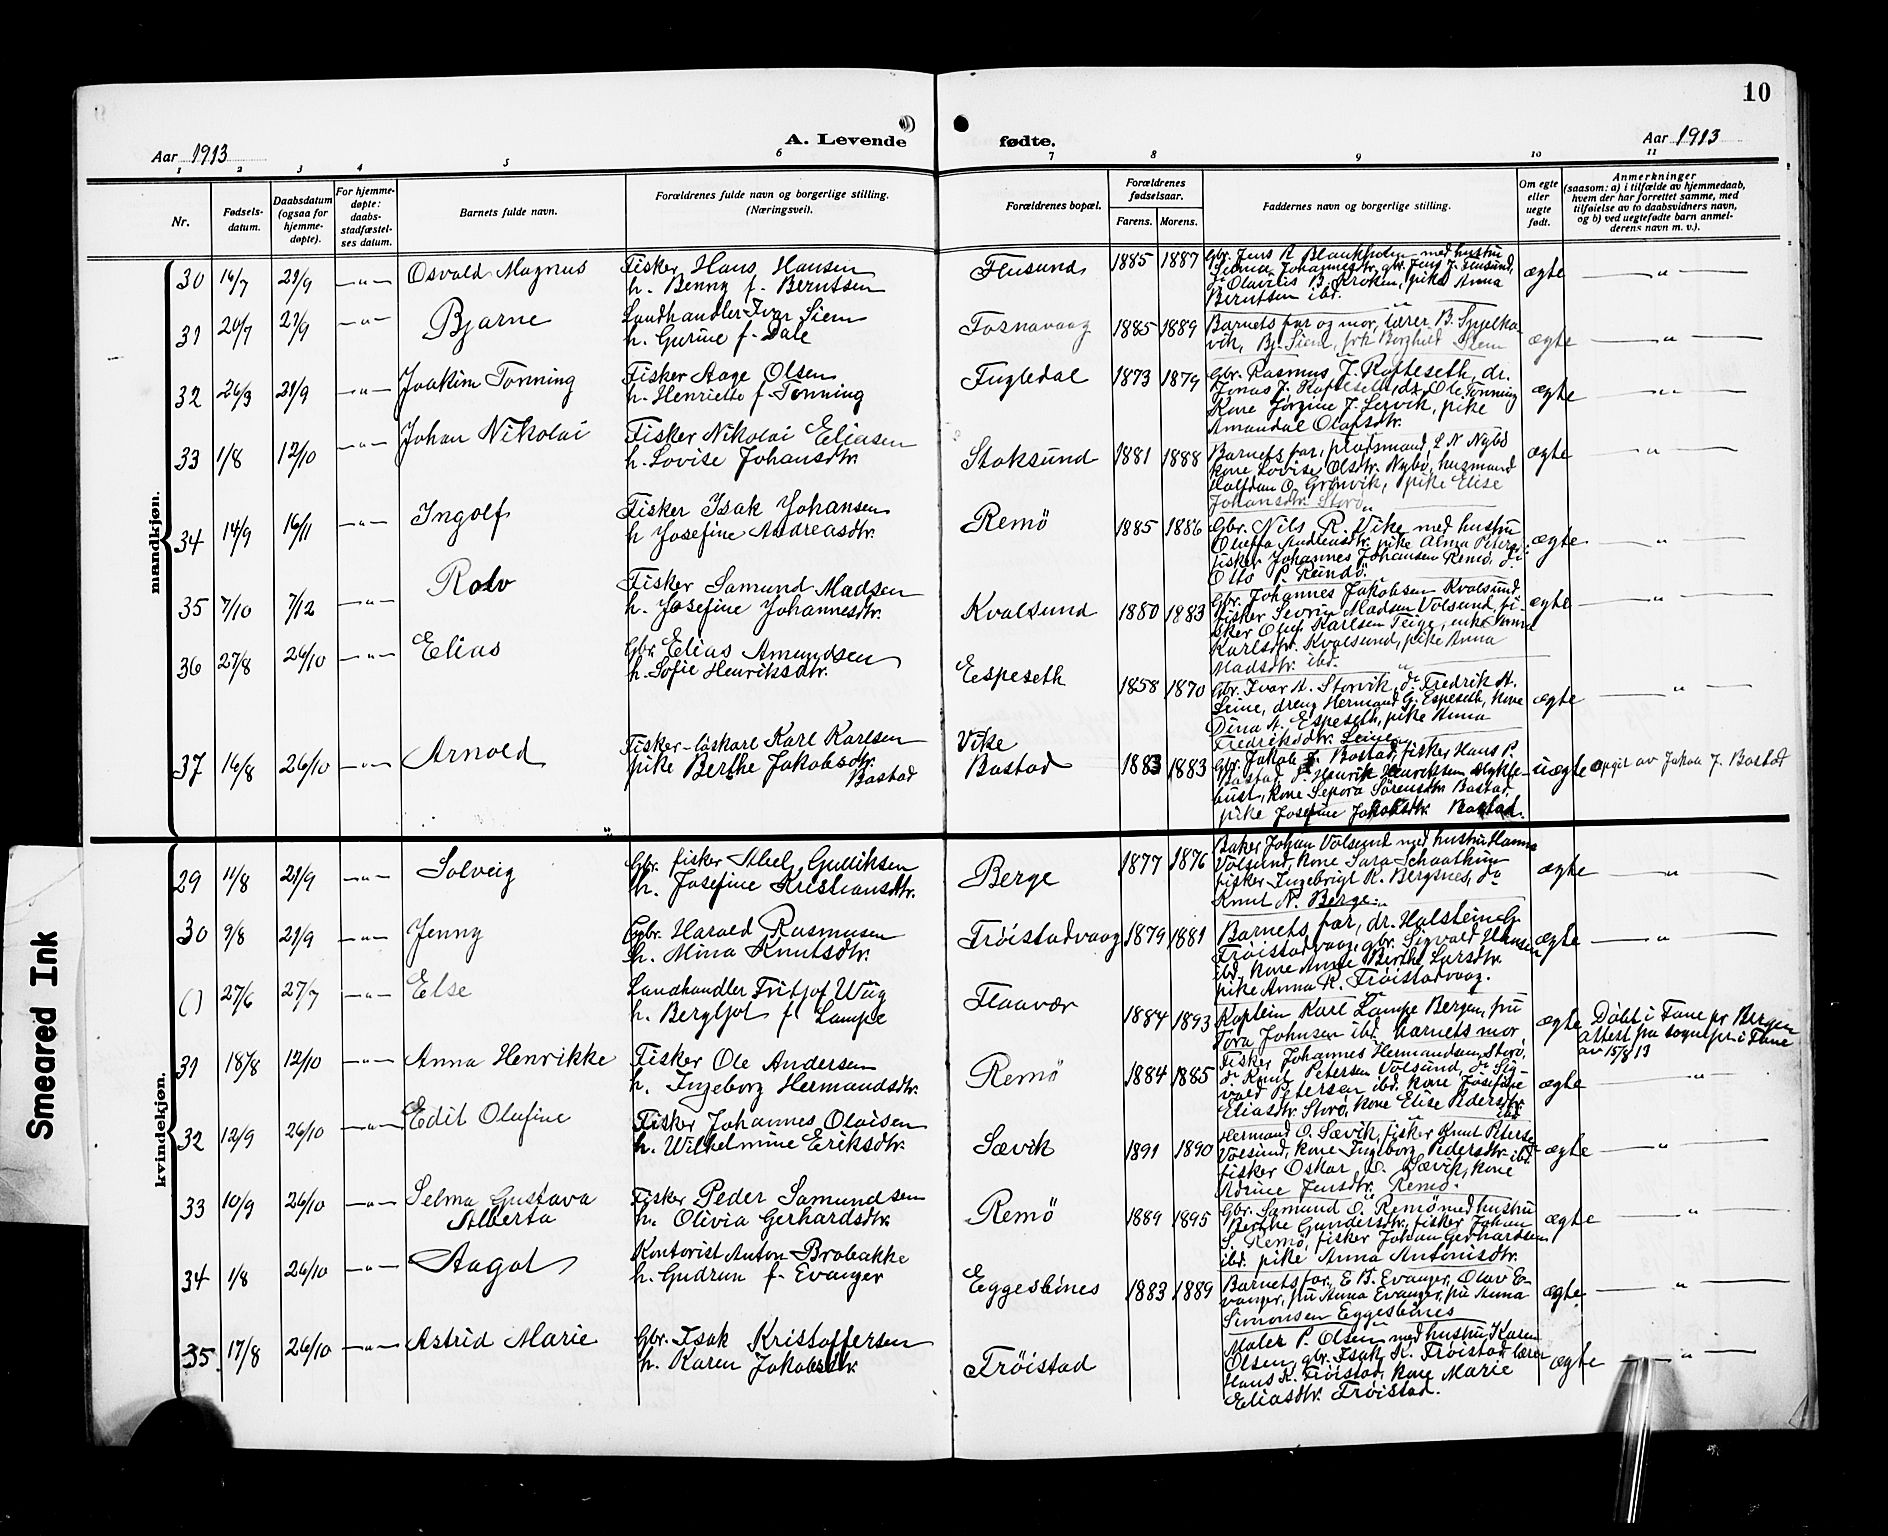 10
Aar 1913
A. Levende
fødte.
Aar 1913
1 2 3 4 5 6 7 8 9 10 11
Nr.
Fødsels-
datum.
Daabsdatum
(ogsaa for
hjemme-
døpte).
For hjemme-
døpte:
daabs-
stadfæstel-
ses datum.
Barnets fulde navn.
Forældrenes fulde navn og borgerlige stilling.
(Næringsvei).
Forældrenes bopæl.
Forældrenes
fødselsaar.
Farens. Morens.
Faddernes navn og borgerlige stilling.
Om egte
eller
uegte
født.
Anmerkninger
(saasom: a) i tilfælde av hjemmedaab,
hvem der har forrettet samme, med
tilføielse av to daabsvidners navn,
og b) ved uegtefødte barn anmel-
derens navn m. v.).
mandkjøn.
30 16/7 21/9 —"— Osvald Magnus
Fisker Hans Hansen
h. Benny f. Berntsen
Flusund 1885 1887
Gbr. Jens A Blankholm med hustru
Berntsen ibd.
ægte —"—
31 20/7 21/9 —"— Bjarne
Landhandler Ivar Siem
h. Gurine f. Dale
Fosnavaag 1885 1889
Barnets far og mor, lærer B. Spjelka-
vik, Bj. Siem, frk Borghild Siem
ægte —"—
32 26/3 21/9 —"— Joakim Tonning
Fisker Aage Olsen
h. Henriette f. Tonning
Fugledal 1873 1879
Gbr. Rasmus J. Kopteseth, dr.
Jonas J. Kopteseth, dr. Ole Tonning
Kone Jørgine J. Servik, pike
Amandal Olafsdtr.
ægte —"—
33 1/8 12/10 —"— Johan Nikolai
Fisker Nikolai Eliasen
h. Lovise Johansdtr.
Stoksund 1881 1888
Barnets far, pladsmand, L N Nybö
kone Lovise Olsdtr. Nybö, husmand
Halfdan O. Grönvik, pike Elise
Johansdtr. Storö
ægte —"—
34 14/9 16/11 —"— Ingolf
Fisker Isak Johansen
h Josefine Andreasdtr.
Remö 1885 1886
Gbr. Nils R. Vike med hustru
Oluffa Andreasdtr. pike Alma Peters
fisker Johannes Johansen Remö, fi
Otto P. Reindö.
ægte —"—
35 7/10 7/12 —"— Rolv
Fisker Samund Madsen
h. Josefine Johannesdtr.
Kvalsund 1880 1883
Gbr. Johannes Jakobsen Kvalsund
fisker Severin Madsen Volsund, fi-
sker Oluf Karlsen Teige, enke Anna
Karlsdtr. Kvalsund, pike Anna
Madsdtr. ibd.
ægte —"—
36 27/8 26/10 —"— Elias
Gbr. Elias Amundsen
h. Sofie Henriksdtr.
Espeseth 1858 1870
Gbr. Ivar A. Storvik, do Fredrik A.
Leine, dreng Hermand G. Espeseth, kone
Dina A. Espeseth, pike Anna
Fredriksdtr. Leine
ægte —"—
37 16/8 26/10 —"— Arnold
Fisker-löskarl Karl Karlsen
pike Berthe Jakobsdtr.
Bastad
Vike
Bastad 1883 1883
Gbr. Jakob J. Bastad, fisker Hans P.
Bastad, do Henrik Henriksen Mykle-
bust, kone Sepora Sörensdtr Bastad,
pike Josefine Jakobsdtr. Bastad.
uægte opgit av Jakob J. Bastad
kvindekjøn.
29 11/8 21/9 —"— Solveig
Gbr. fisker Abel Gulliksen
h. Josefine Kristiansdtr.
Berge 1877 1876
Baker Johan Volsund med hustru Hanna
Volsund, kone Sara Schaathun
fisker Ingebrigt R. Bergsnes, do
Knut N. Berge
ægte —"—
30 9/8 21/9 —"— Jenny
Gbr. Harald Rasmusen
h. Mina Knutsdtr.
Tröistadvaag 1879 1881
Barnets far, dr. Halstein G.
Tröistadvaag, gbr. Sigvald Hansen
ibd, kone Anne Berthe Larsdtr.
pike Anna R. Tröistadvaag.
ægte —"—
() 27/6 27/7 —"— Else
Landhandler Fritjof Wiig
h. Bergljot f. Lampe
Flaavær 1884 1893
Kaptein Karl Lampe Bergen, fru
Tora Johnsen ibd. barnets mor
ægte Döbt i Fane pr Bergen
attest fra sognepr. i Fane
av 15/8 13
31 18/8 12/10 —"— Anna Henrikke
Fisker Ole Andersen
h. Ingeborg Hermandsdtr.
Remö 1884 1885
Fisker Johannes Hermandsen Storö,
do Knut Petersen Volsund, do Sig-
vald Petersen ibd. kone Josefine
Eliasdtr. Storö, kone Elise Pedersdtr.
ibd
ægte "—
32 12/9 26/10 —"— Edit Olufine
Fisker Johannes Olaisen
h. Wilhelmine Eriksdtr.
Sævik 1891 1890
Hermand O. Sævik, fisker Knut Peterse
Volsund, kone Ingeborg Pedersdtr. ibd.
fisker Oskar O. Sævik, kone
Adrine Jensdtr. Remö.
ægte —"—
33 10/9 26/10 —"— Selma Gustava
Alberta
Fisker Peder Samundsen
h. Olivia Gerhardsdtr.
Remö 1889 1895
Gbr. Samund O. Remö med hustru
Berthe Gundersdtr, fisker Johan
S. Remö, fisker Johan Gerhardsen
ibd. pike Anna Antonisdtr.
ægte "
34 1/8 26/10 —"— Aagot
Kontorist Anton Brobakke
h. Gudrun f. Evanger
Eggesbönes 1883 1889
Barnets far, E B. Evanger, Olav E-
vanger, fru Anna Evanger, fru Anna
Simonsen Eggesbönes
ægte —"—
35. 17/8 26/10 —"— Astrid Marie
Gbr. Isak Kristoffersen
h. Karen Jakobsdtr.
Tröistad
Maler P. Olsen med hustru Karen
Olsen, gbr. Isak K. Tröistad, lærer
Hans K. Tröistad, kone Marie
Eliasdtr. Tröistad.
ægte —"—
Smeared Ink